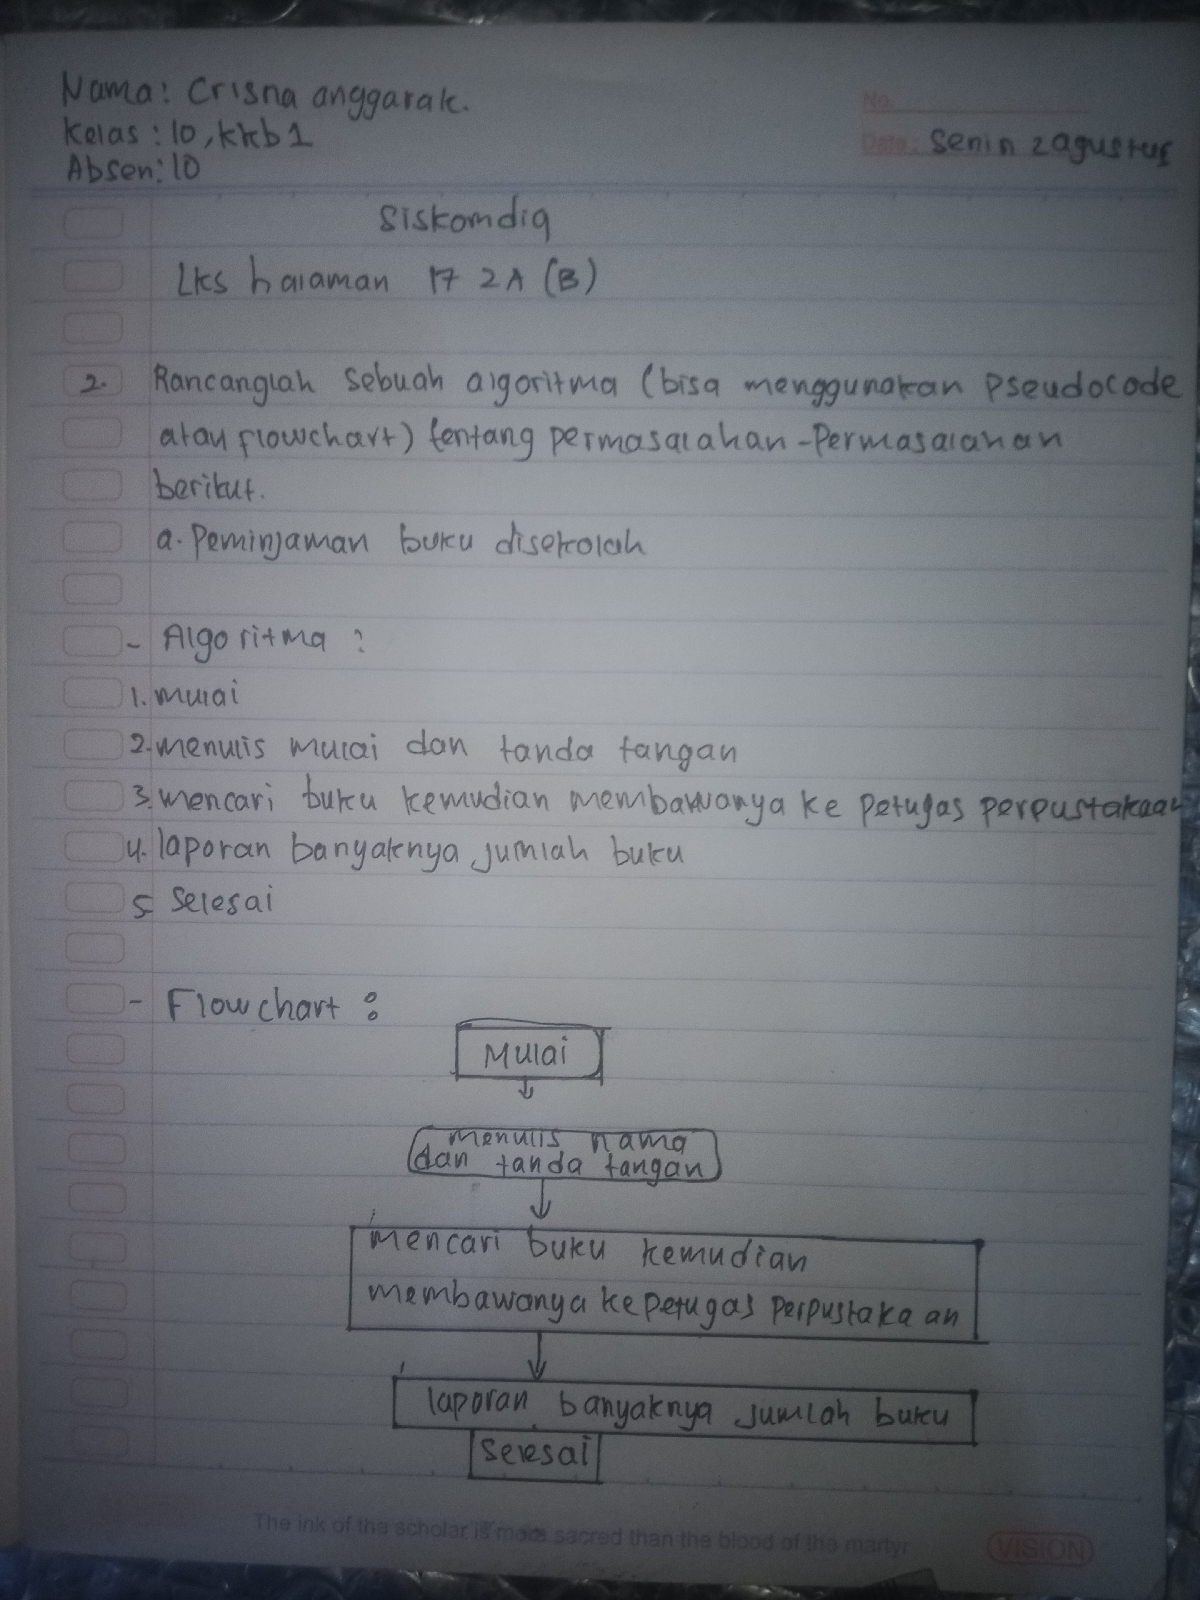 Nama: Crisna anggarak.
Kelas: 10, kkb1
Absen: 10
No.
Date: Senin 2 agustus
Siskomdig
Lks halaman 17 2A (B)
2. Rancanglah sebuah algoritma (bisa menggunakan Pseudocode
atau flowchart) tentang permasalahan-Permasalahan
berikut.
a. Peminjaman buku disekolah
- Algoritma:
1. mulai
2. menulis mulai dan tanda tangan
3. mencari buku kemudian membawanya ke petugas perpustakaan
4. laporan banyaknya jumlah buku
5 Selesai
- Flowchart:
Mulai
menulis nama
dan tanda tangan
mencari buku kemudian
membawanya ke petugas perpustakaan
laporan banyaknya jumlah buku
Selesai
The ink of the scholar is more sacred than the blood of the martyr
VISION